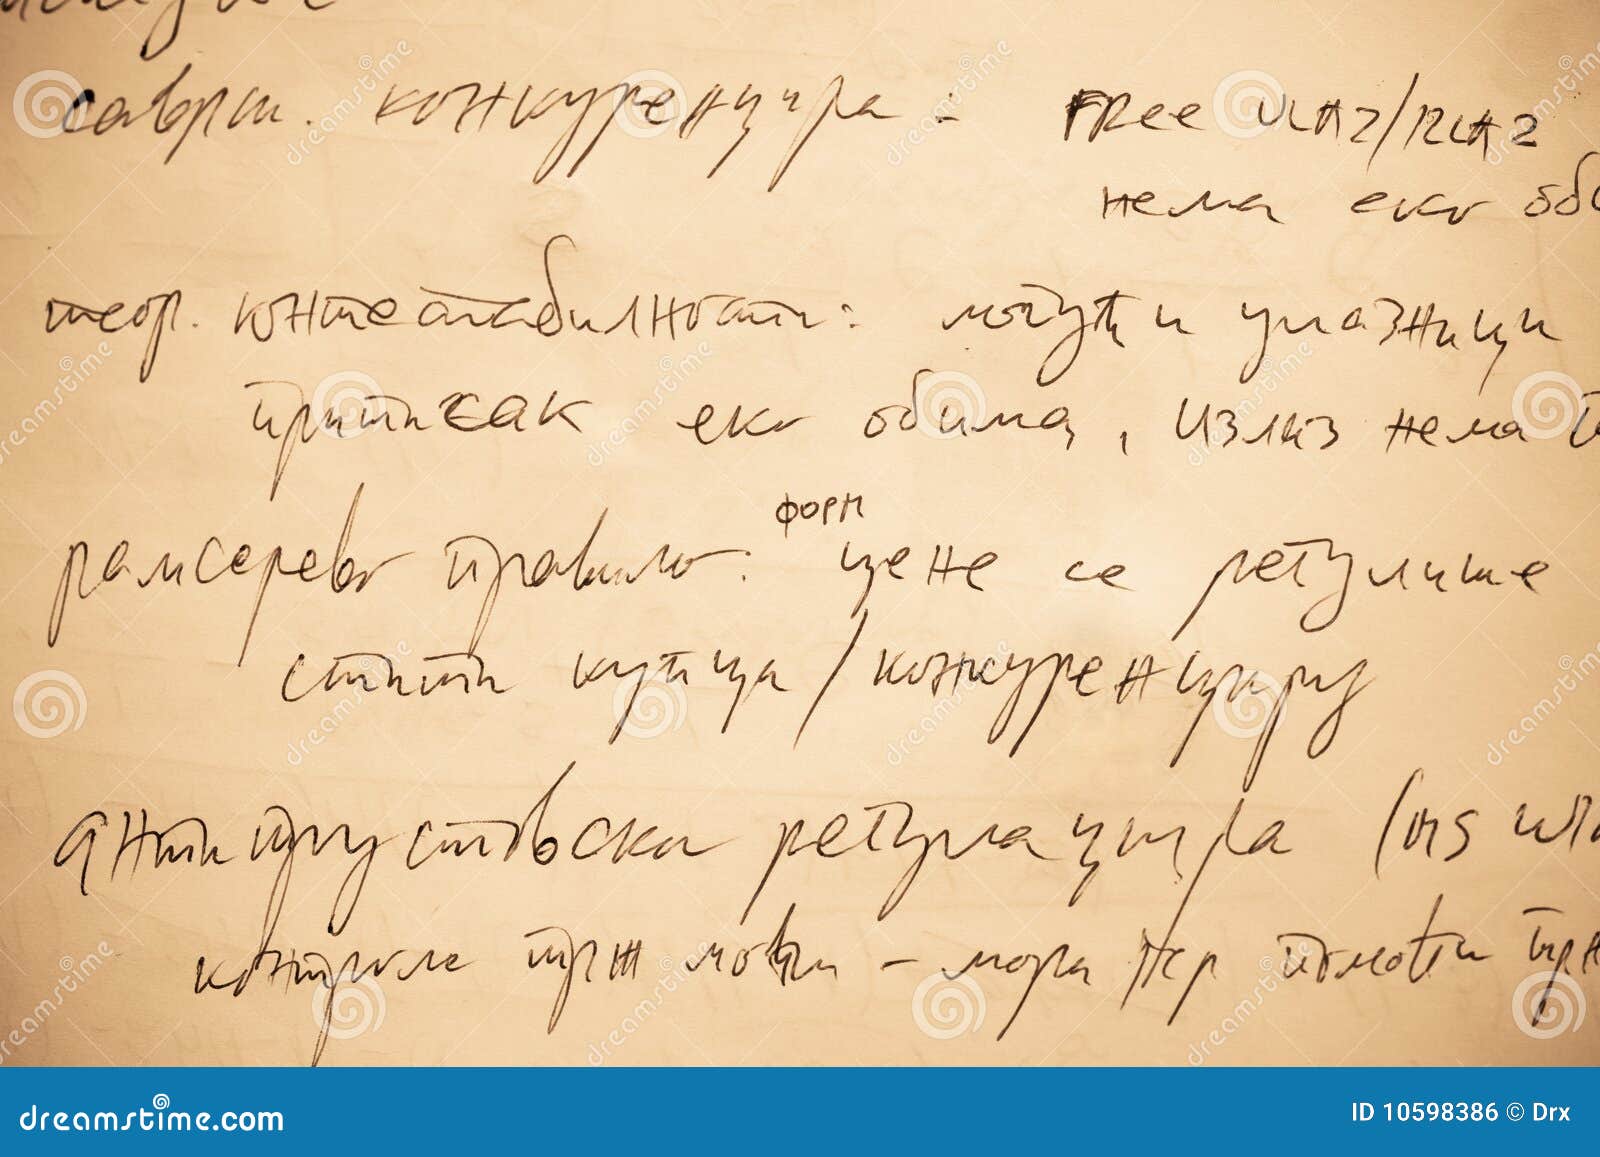 саврш. конкуренција : FREE УЛАЗ/ИЗЛАЗ
нема еко об
теор. контестабилности: могући улазници
притисак еко обима, излаз нема т
форм
рамсерево правило: цене се регулише
стити купца/конкуренцију
антитрустовска регулација (
контроле трж моћи - мора помоћи трж
dreamstime.com ID 10598386 © Drx